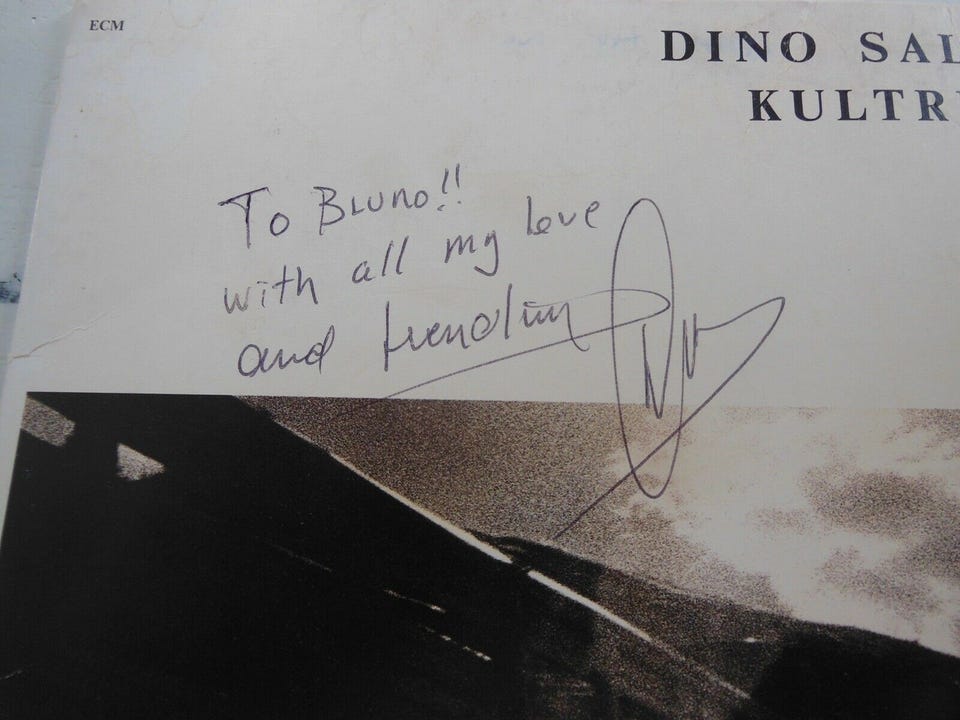 ECM
DINO SAL
KULTR
To Bruno!!
with all my love
and